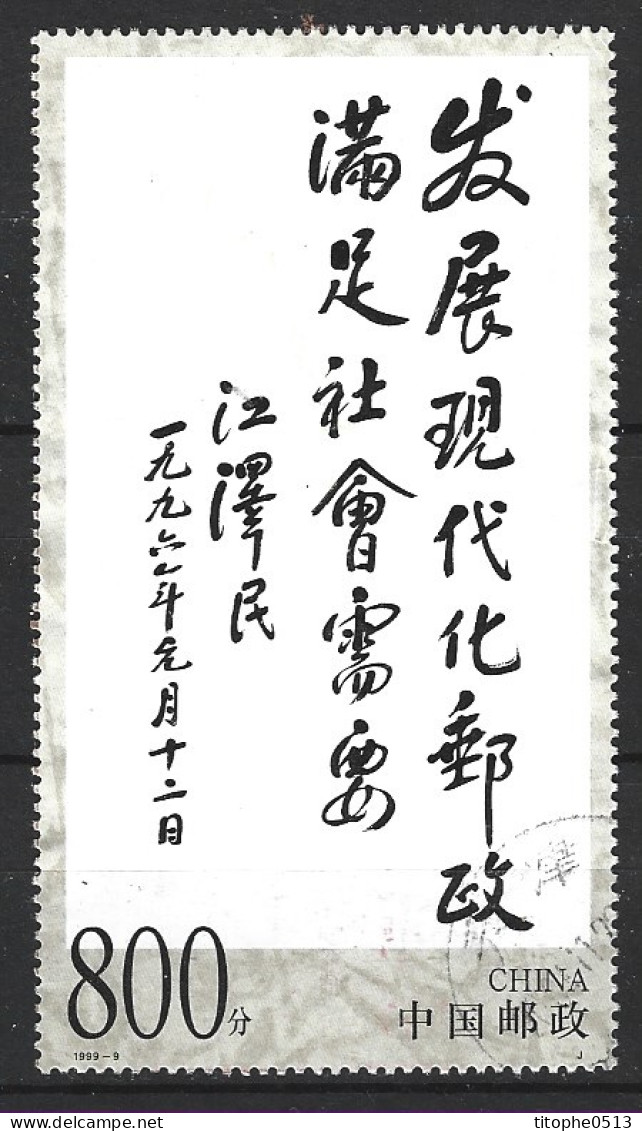 发展现代化郵政
滿足社會需要
江澤民
一九九六年元月十二日
800分
CHINA
中国邮政
1999-9
J
titophe0513